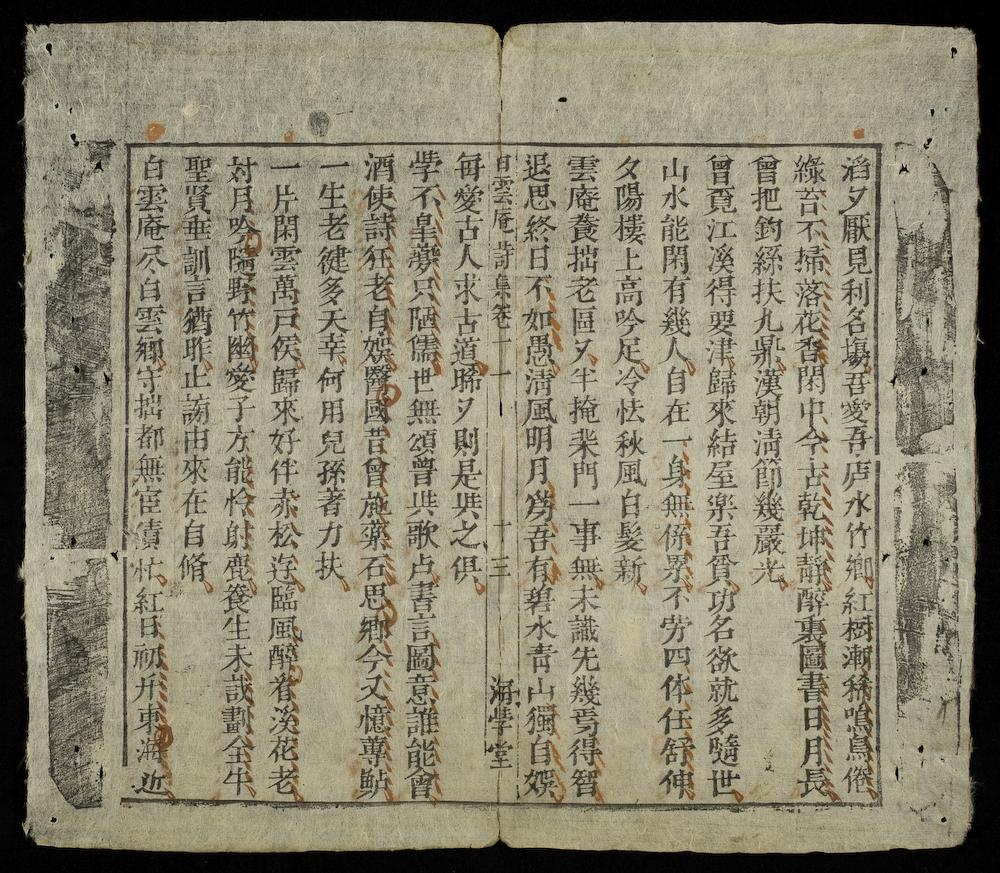 滔夕厭見利名塲吾愛吾庐水竹鄉紅樹漸稀鳴鳥倦
綠苔不掃落花香閑中今古乾坤靜醉裏圖書日月長
曾把釣絲扶九鼎漢朝淸節幾嚴光
曾覔江溪得要津歸來結屋楽吾貧功名欲就多隨世
山水能閑有幾人自在一身無係累不劳四体任舒伸
夕陽樓上高吟足冷怯秋風白髮新
雲庵養拙老區夕半掩柴門一事無未識先幾焉得智
退思終日不如愚淸風明月旁吾有碧水青山獨自娯
白雲庵诗集卷二 一 十三 海學堂
每愛古人求古道晞夕則是與之俱
學不皇夢只陋儒世無頌曾與歌占書言圖意誰能會
酒使詩狂老自娯醫國昔曾施藥石思鄉今又憶蓴鲈
一生老健多天幸何用兒孫著力扶
一片閑雲萬戸侯歸來好伴赤松逰臨風醉看溪花老
对月吟隨野竹幽愛子方能怜射鹿養生未哉劃全牛
聖賢垂訓言猶昨止謗由來在自脩
白雲庵尽白雲鄉守拙都無宦債忙紅日初升東海近